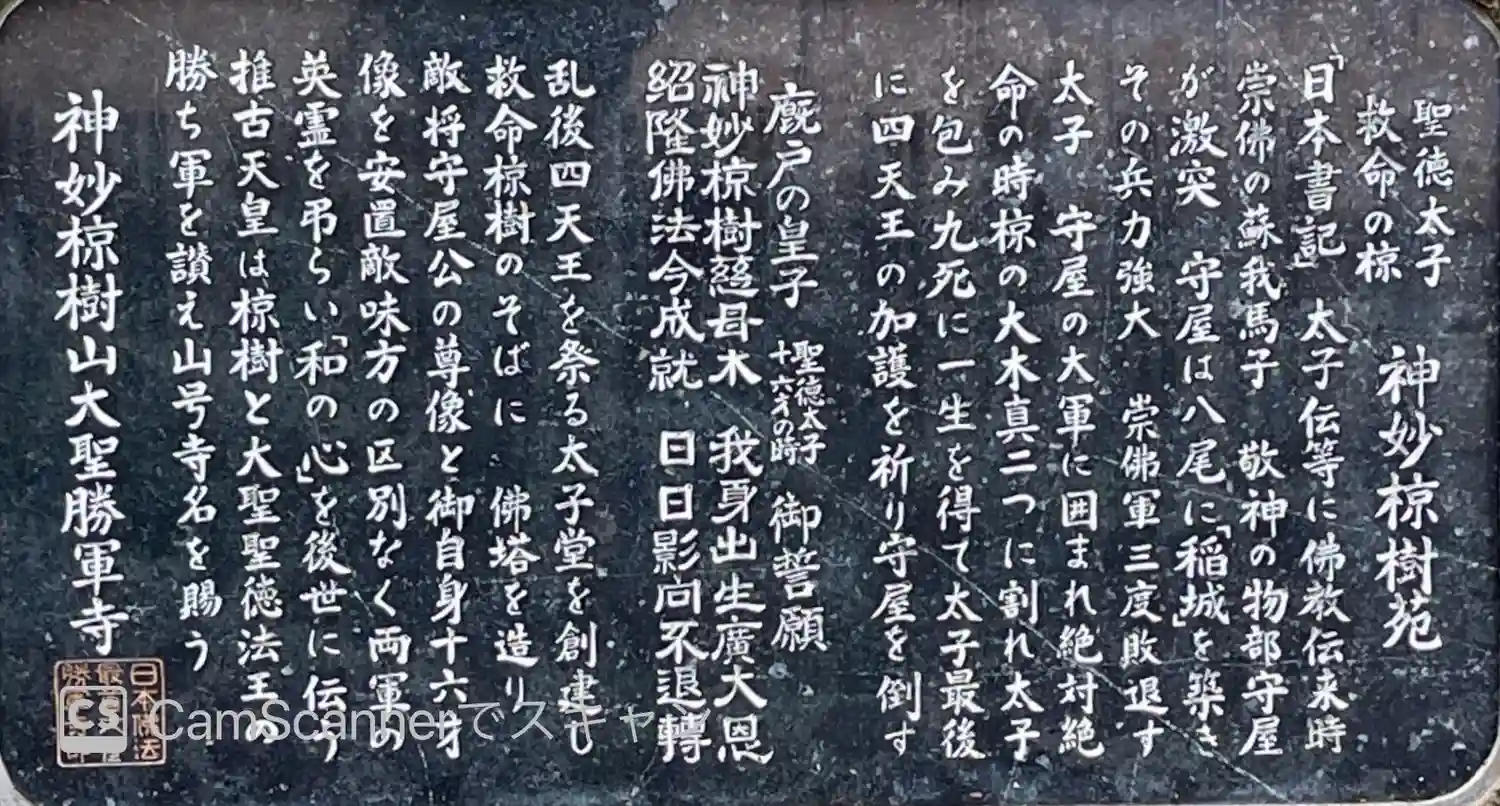 聖徳太子
救命の椋
神妙椋樹苑
「日本書記」 太子伝等に佛教伝来時
崇佛の蘇我馬子 敬神の物部守屋
が激突 守屋は八尾に「稲城」を築き
その兵力強大 崇佛軍三度敗退す
太子 守屋の大軍に囲まれ絶対絶
命の時椋の大木真二つに割れ太子
を包み九死に一生を得て太子最後
に四天王の加護を祈り守屋を倒す
厩戸の皇子 聖德太子 十六才の時 御誓願
神妙椋樹慈母木 我身出生廣大恩
紹隆佛法今成就 日日影向不退轉
乱後四天王を祭る太子堂を創建し
救命椋樹のそばに 佛塔を造り
敵将守屋公の尊像と御自身十六才
像を安置敵味方の区別なく両軍の
英霊を弔らい「和の心」を後世に伝う
推古天皇は椋樹と大聖聖徳法王の
勝ち軍を讃え山号寺名を賜う
神妙椋樹山大聖勝軍寺
日本佛法
CS CamScannerでスキャン